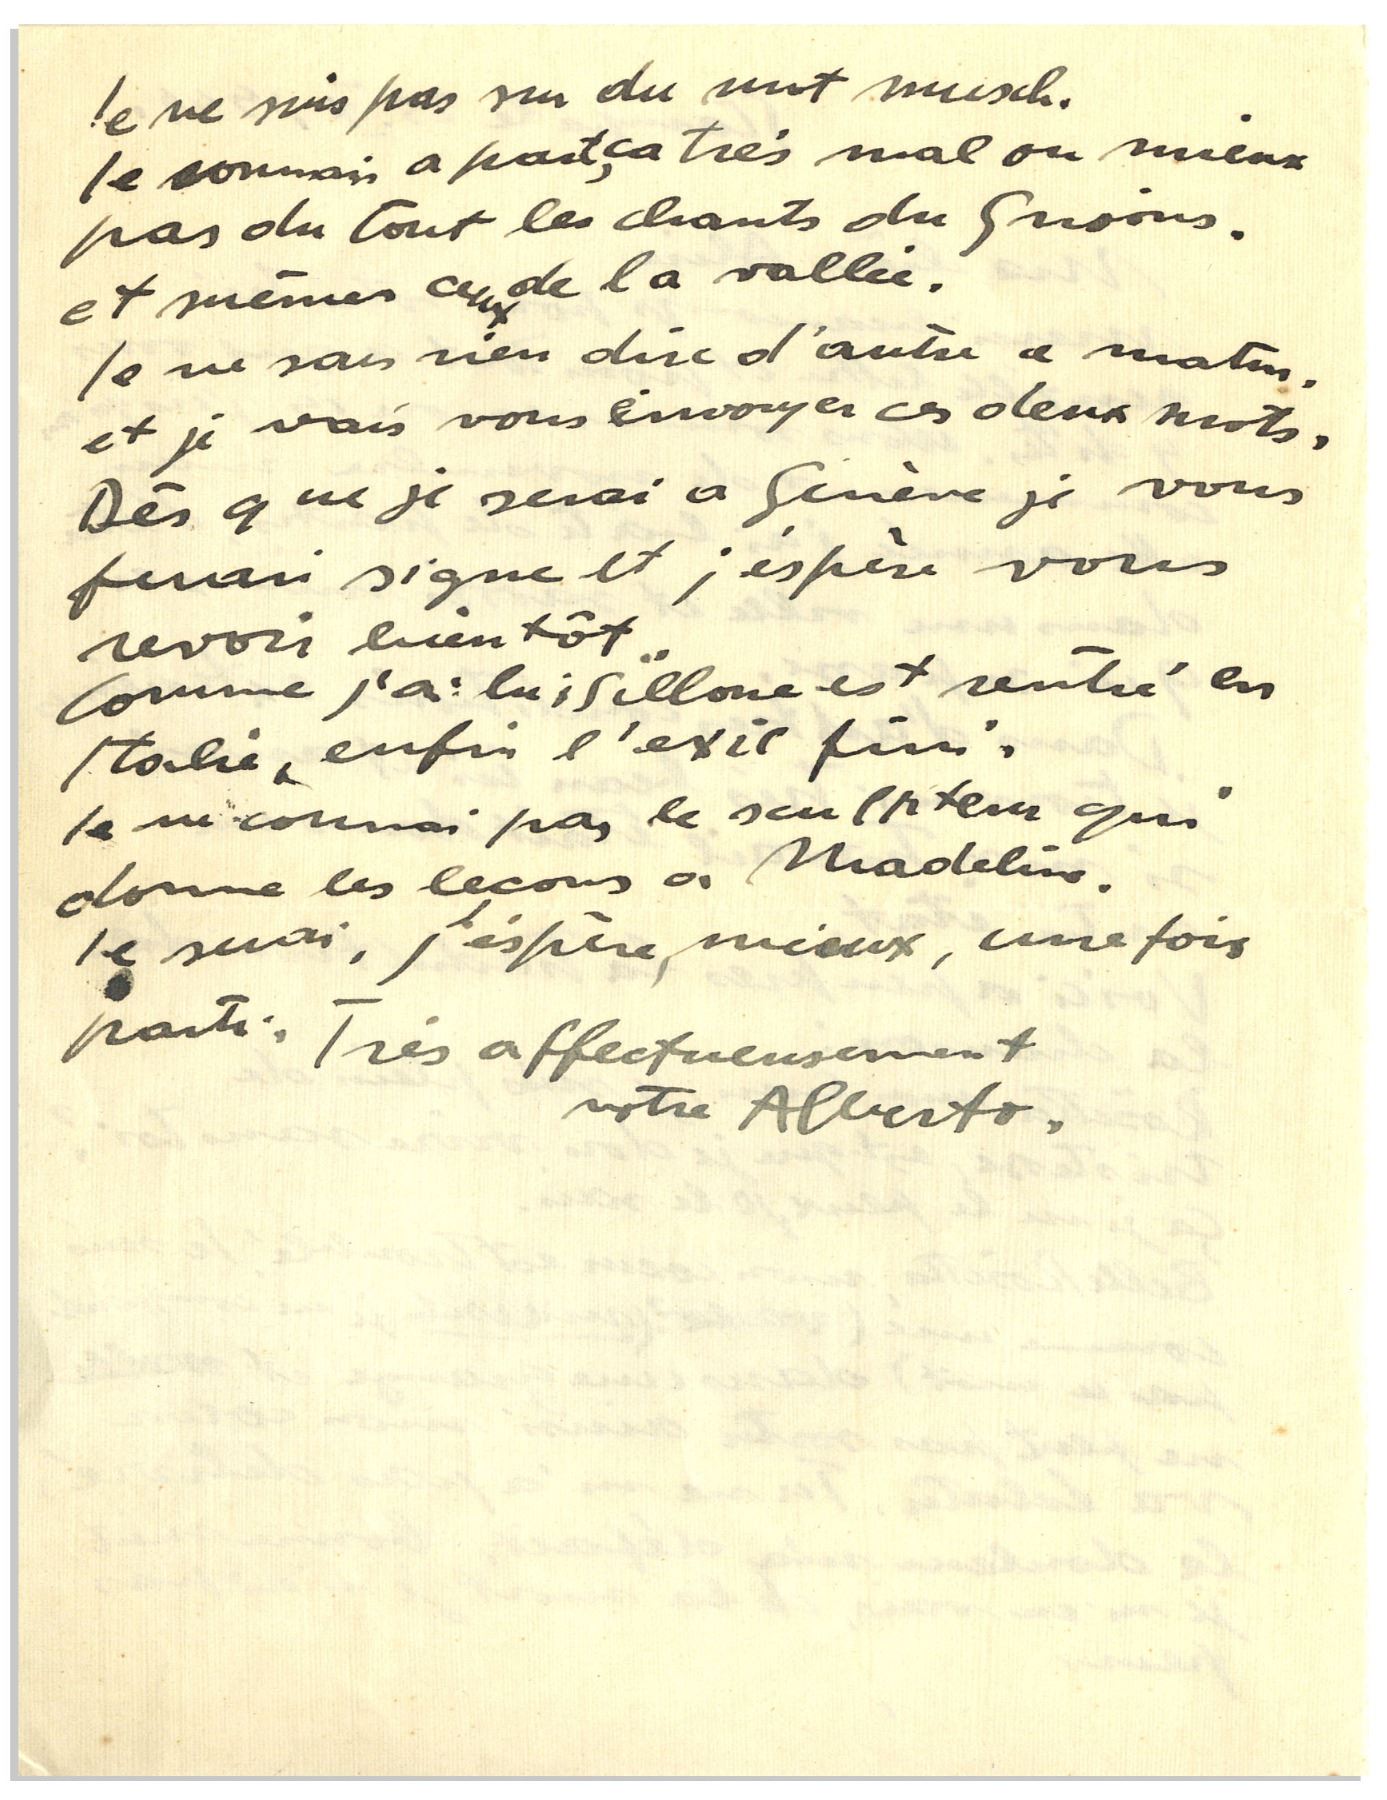 Je ne suis pas sur du mot musch.
Je connais a part ça très mal ou mieux
pas du tout les chants du Grisons.
et mêmes ceux de la vallée.
Je ne sais rien dire d'autre ce matin.
et je vais vous envoyer ces deux mots.
Dès que je serai a Genève je vous
ferai signe et j'éspère vous
revoir bientôt.
Comme j'ai lu, Sillone est rentré en
Italie, enfin l'exil fini.
Je ne connai pas le sculpteur qui
donne les leçons a Madeline.
Je serai, j'éspère, mieux, une fois
parti. Très affectueusement
votre Alberto.